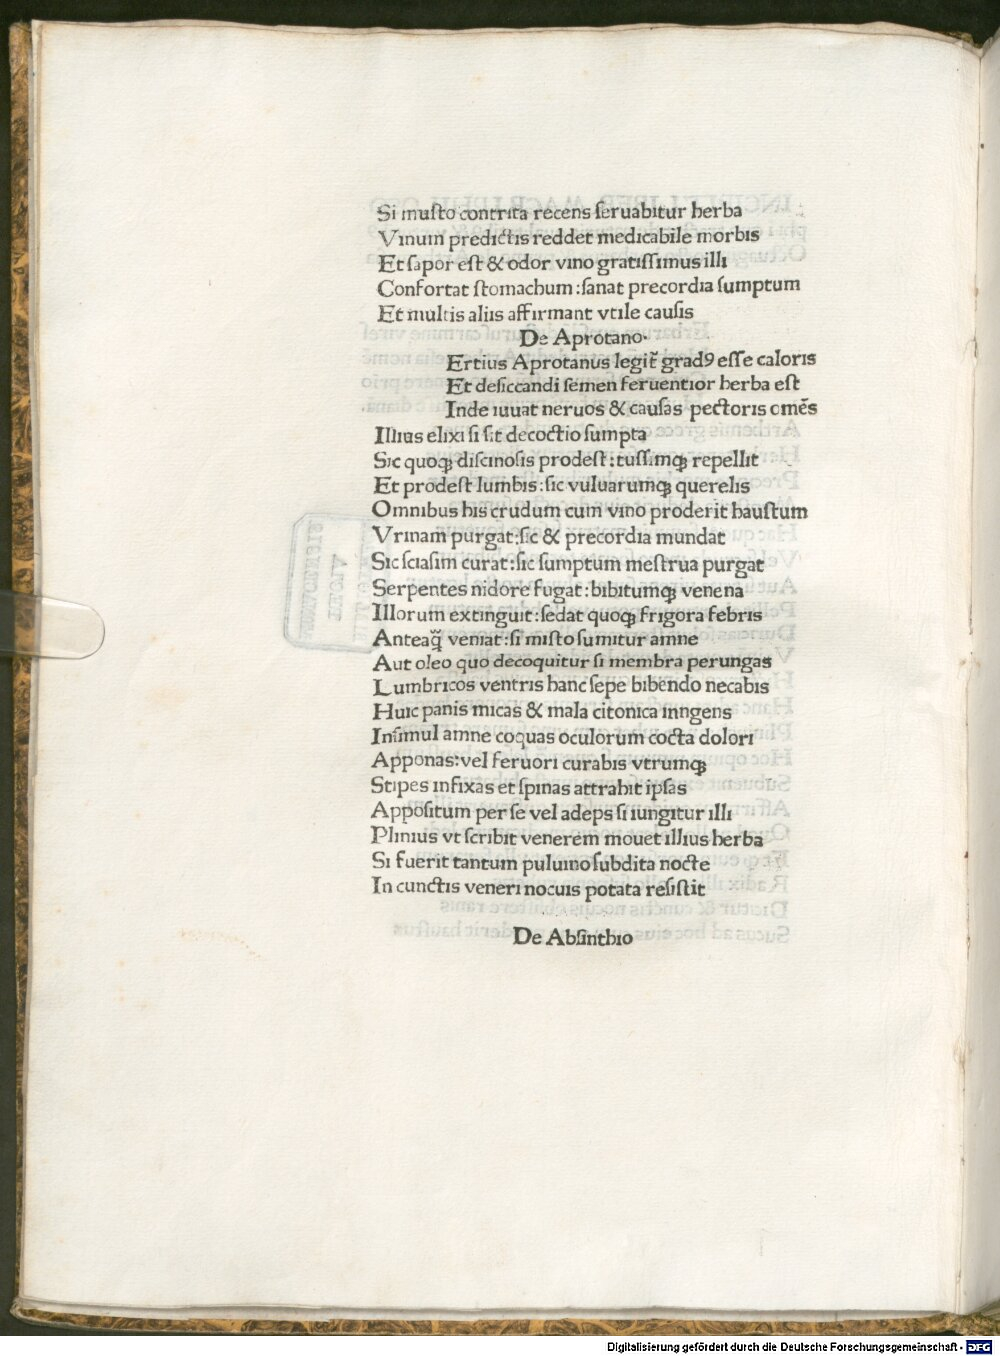 Si musto contrita recens seruabitur herba
Vinum predictis reddet medicabile morbis
Et sapor est & odor vino gratissimus illi
Confortat stomachum :sanat precordia sumptum
Et multis aliis affirmant vtile causis
De Aprotano·
Ertius Aprotanus legit̃ gradꝰ esse caloris
Et desiccandi semen feruentior herba est
Inde iuuat neruos & causas pectoris omēs
Illius elixi si sit decoctio sumpta
Sic quoqꝫ discinosis prodest :tussimqꝫ repellit
Et prodest lumbis :sic vuluarumqꝫ querelis
Omnibus his crudum cum vino proderit haustum
Vrinam purgat :sic & precordia mundat
Sic sciasim curat :sic sumptum mestrua purgat
Serpentes nidore fugat :bibitumqꝫ venena
Illorum extinguit :sedat quoqꝫ frigora febris
Anteaq̃ veniat :si misto sumitur amne
Aut oleo quo decoquitur si membra perungas
Lumbricos ventris hanc sepe bibendo necabis
Huic panis micas & mala citonica inngens
Insimul amne coquas oculorum cocta dolori
Apponas:vel feruori curabis vtrumqꝫ
Stipes infixas et spinas attrahit ipsas
Appositum per se vel adeps si iungitur illi
Plinius vt scribit venerem mouet illius herba
Si fuerit tantum puluino subdita nocte
In cunctis veneri nocuis potata resistit
De Absinthio
Digitalisierung gefördert durch die Deutsche Forschungsgemeinschaft - DFG